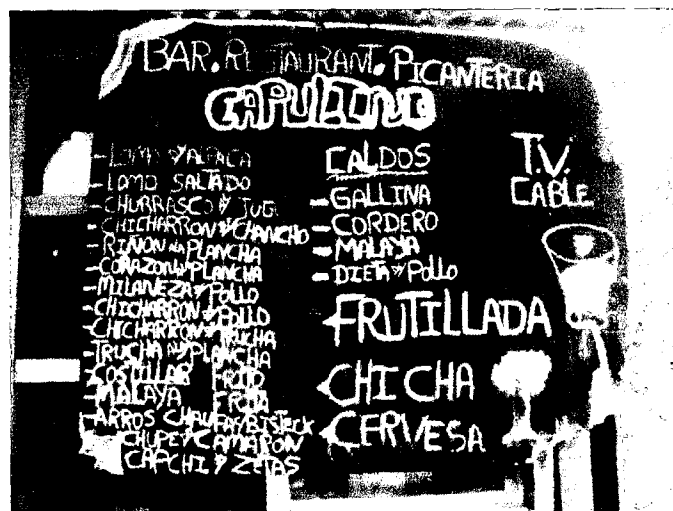 BAR. RESTAURANT. PICANTERIA
CAPULLINI
- LOMO D ALPACA
- LOMO SALTADO
- CHURRASCO A JUG
- CHICHARRON DE CHANCHO
- RIÑON A LA PLANCHA
- CORAZON A LA PLANCHA
- MILANEZA DE POLLO
- CHICHARRON DE POLLO
- CHICHARRON DE TRUCHA
- TRUCHA A LA PLANCHA
- COSTILLAR FRITO
- MALAYA FRITA
- ARROS CHAUFA C/BISTECK
- CHUPE D CAMARON
CAPCHI D ZETAS
CALDOS
- GALLINA
- CORDERO
- MALAYA
- DIETA DE POLLO
FRUTILLADA
CHICHA
CERVESA
T.V.
CABLE